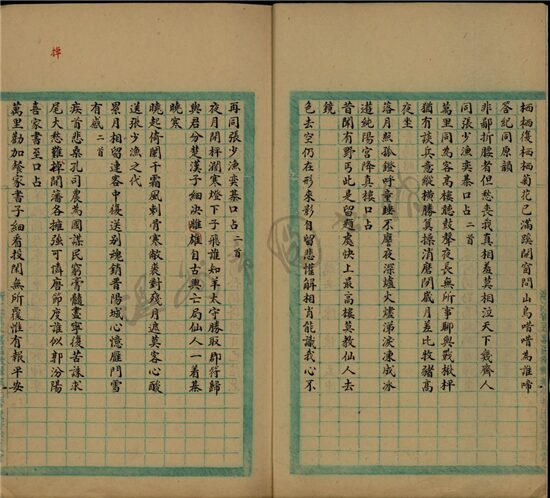 栖栖復栖栖菊花已滿蹊閉窗問山鳥喈喈為誰啼
答紀同原韻
非鄙折腰者但愁喪我真相羞莫相泣天下幾齊人
同張少漁奕棊口占 二首
萬里同為客高樓聽鼓聲夜長無所事聊與戰楸枰
猶有談兵意縱橫勝負操消磨閒歲月差比牧豬高
夜坐
落月照孤鐙呼童睡不譍夜深爐火燼涕淚凍成冰
遊純陽宮降真樓口占
昔聞有野弓此是留題處快上最高樓莫教仙人去
鏡
色去空仍在形來影自留悲懽解相肖能識我心不
再同張少漁奕棊口占 二首
夜月閒枰濶寒燈下子飛誰如羊太守勝取郡符歸
與君分楚漢子細決雌雄自古興亡局仙人一着棊
曉寒
曉起倚闌干霜風刺骨寒敝裘對殘月遮莫客心酸
送張少漁之代
累月相留連客中復送別魂銷晉陽城心憶雁門雪
有感 二首
疾首悲桑孔司農為國謀民窮膏髓盡寧復苦誅求
尾大愁難掉開藩各擁強可憐磨節度誰似郭汾陽
喜家書至口占
萬里勸加餐家書子細看投閒無所覆惟有報平安